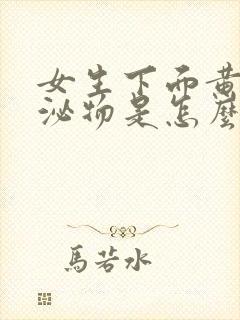 女生下面黄
泌物是怎麼
馬若水